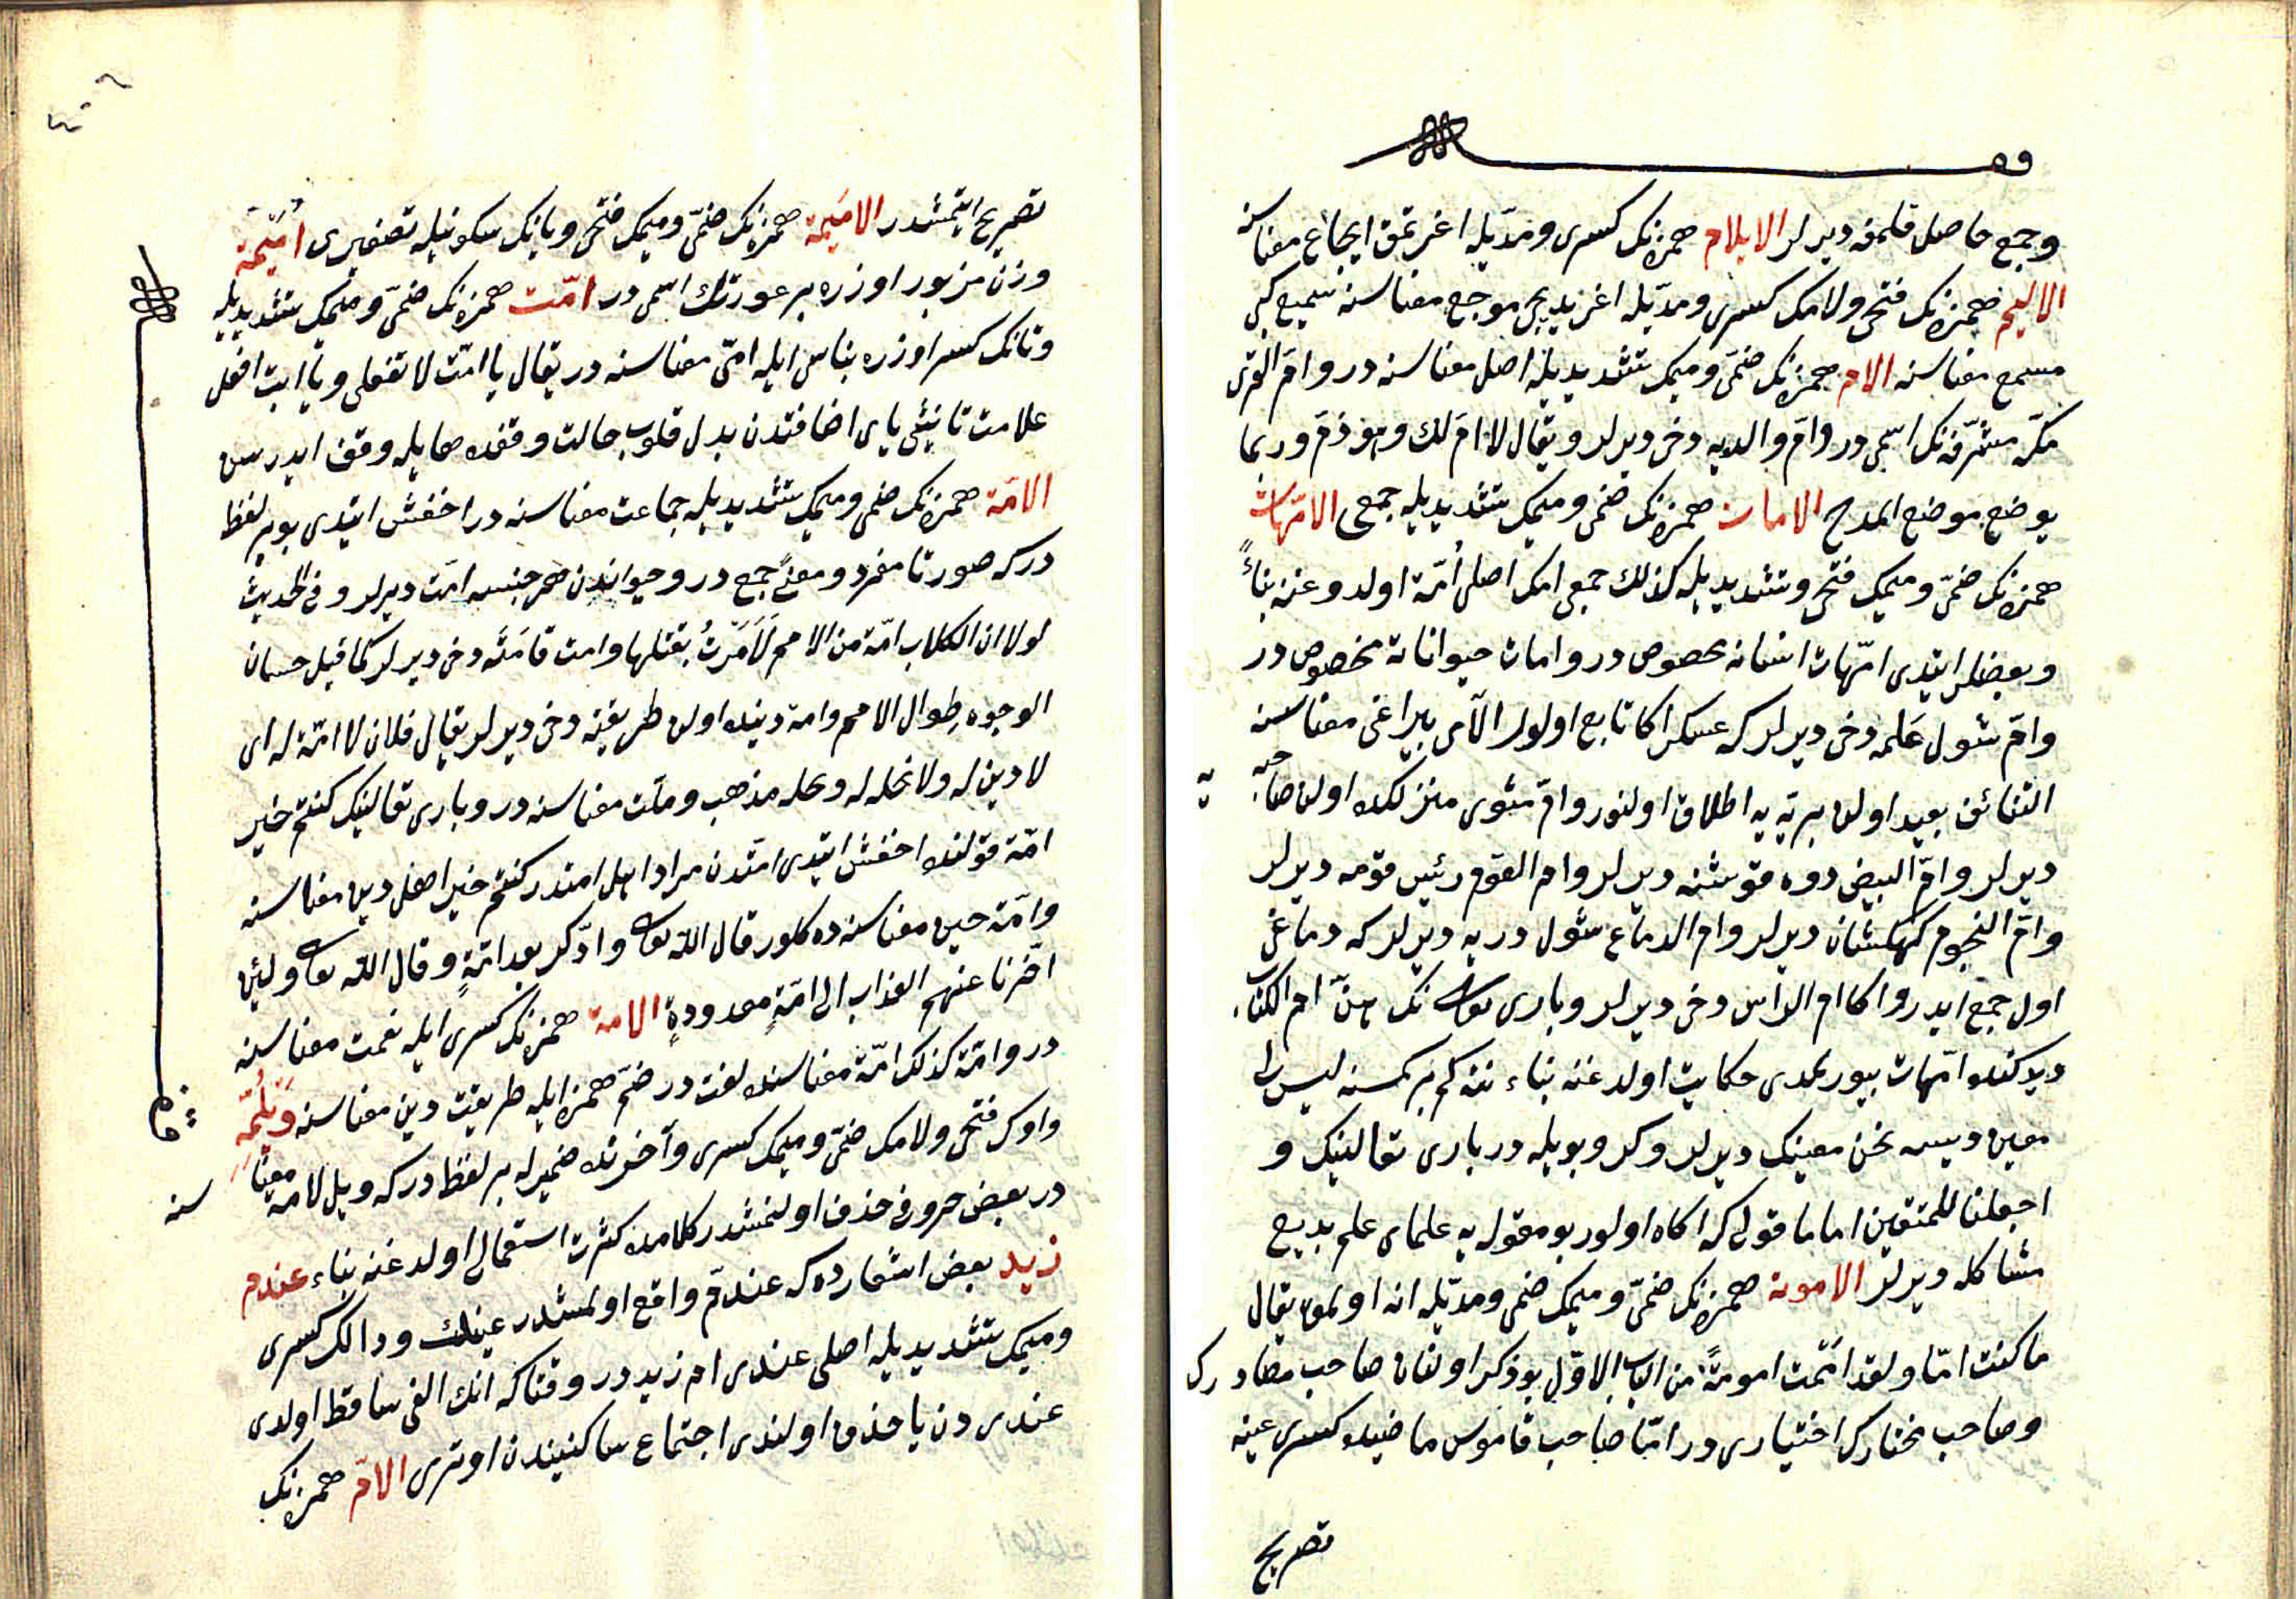 وقف
وجع حاصل قلمغه ديرلر الايلام همزه نك كسرى ومدّيله اغرتمق ايجاع معناسنه
الاليم همزه نك فتحى ولامك كسرى ومدّيله اغريديجى موجع معناسنه سميع كبى
مسمع معناسنه الام همزه نك ضمّى وميمك تشديديله اصل معناسنه در وامّ القرى
مكّه مشرّفه نك اسمى در وامّ والديه دخى ديرلر ويقال لا امّ لك وهو ذمّ وربما
يوضع موضع المدح الامات همزه نك ضمى وميمك تشديديله جمعى الامّهات
همزه نك ضمّى وميمك فتحى وتشديديله كذلك جمعى امك اصلى اُمّهة اولدوغنه بناءً
وبعضلر ايتدى امّهات انسانه مخصوص در وامات حيواناته مخصوص در
وامّ شول عَلمه دخى ديرلر كه عسكر اكا تابع اولور الآى بيراغى معناسنه
التنائف بعيد اولان بريّه يه اطلاق اولنور وامّ مثوى منزلكده اولان صاحبه يه
ديرلر وامّ البيض دوه قوشنه ديرلر وام القوم رئيس قومه ديرلر
وامّ النجوم كهكشان ديرلر وام الدماغ شول دريه ديرلر كه دماغى
اول جمع ايدر واكا ام الراس دخى ديرلر وبارى تعالى نك هنّ ام الكتاب
ديدكنده امّهات بيورمدى حكايت اولدوغنه بناء نته كم بر كمسنه ليس لى
معين ديسه نحن معينك ديرلر وكر وبويله در بارى تعالينك و
اجعلنا للمتقين اماما قولى كه اكاه اولور بو مقوله يه علماى علم بديع
مشاكله ديرلر الامومة همزه نك ضمّى وميمك ضمى ومدّيله انه اولمق يقال
ما كنت امّا ولقد امّمت امومةً من الباب الاوّل بو ذكر اولنان صاحب مصادرك
وصاحب مختارك اختيارى در امّا صاحب قاموس ماضيده كسرى عينه
تصريح
تصريح ايتمشدر الاميمة همزه نك ضمّى وميمك فتحى ويانك سكونيله تصغيرى اُمَيمة
وزن مزبور اوزره بر عورتك اسمى در امّت همزه نك ضمّى وميمك تشديديله
وتانك كسر اوزره بناسى ايله امّى معناسنه در يقال يا امّت لا تفعلى ويا ابت افعل
علامت تانيثى ياى اضافتدن بدل قلوب حالت وقفده ها يله وقف ايدرسن
الامّة همزه نك ضمى وميمك تشديديله جماعت معناسنه در اخفش ايتدى بو بر لفظ
در كه صورتا مفرد ومعنىً جمع در وحيواندن هر جنسه امّت ديرلر وفى الحديث
لولا ان الكلاب امّة من الامم لَاَمَرْتُ بقتلها وامت قامَتَه دخى ديرلر كما قيل حسان
الوجوه طوال الامم وامة دينده اولان طريقته دخى ديرلر يقال فلان لا امّة له اى
لا دين له ولا نحله له ونحله مذهب وملّت معناسنه در وبارى تعالينك كنتم خير
امّة قولنده اخفش ايتدى امّتدن مراد اهل امتدر كنتم خير اهل دين معناسنه
وامّة حين معناسنه ده كلور قال الله تعالى وادّكر بعد امّةٍ وقال الله تعالى ولئن
اخّرنا عنهم العذاب الى امّةٍ معدودةٍ الامة همزه نك كسرى ايله نعمت معناسنه
در وامّة كذلك امّة معناسنده لغت در ضمّ همزه ايله طريقت دين معناسنه وَيْلُمِّهِ
واوك فتحى ولامك ضمّى وميمك كسرى وآخرنده ضمير له بر لفظ در كه ويل لامّه معناسنه
در بعض حروفى حذف اولنمشدر كلامده كثرت استعمالى اولدوغنه بناء عندم
زيد بعض اشعارده كه عندمّ واقع اولمشدر عينك ودالك كسرى
وميمك تشديديله اصلى عندى ام زيد در وقتاكه انك الفى ساقط اولدى
عندى دن يا حذف اولندى اجتماع ساكنيندن اوترى الامّ همزه نك